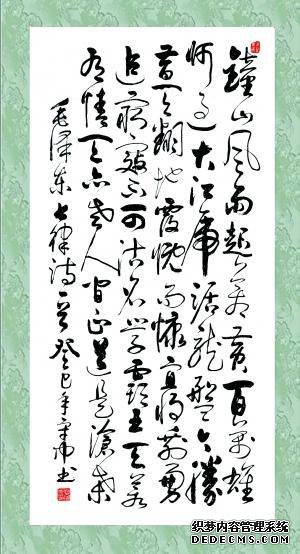 鐘山风雨起苍黄百萬雄
师过大江虎踞龙盤今勝
昔天翻地覆慨而慷宜将剩勇
追窮寇不可沽名学霸王天若
有情天亦老人间正道是滄桑
毛泽东七律诗一首 癸巳年 书
织梦内容管理系统
DEDECMS.COM